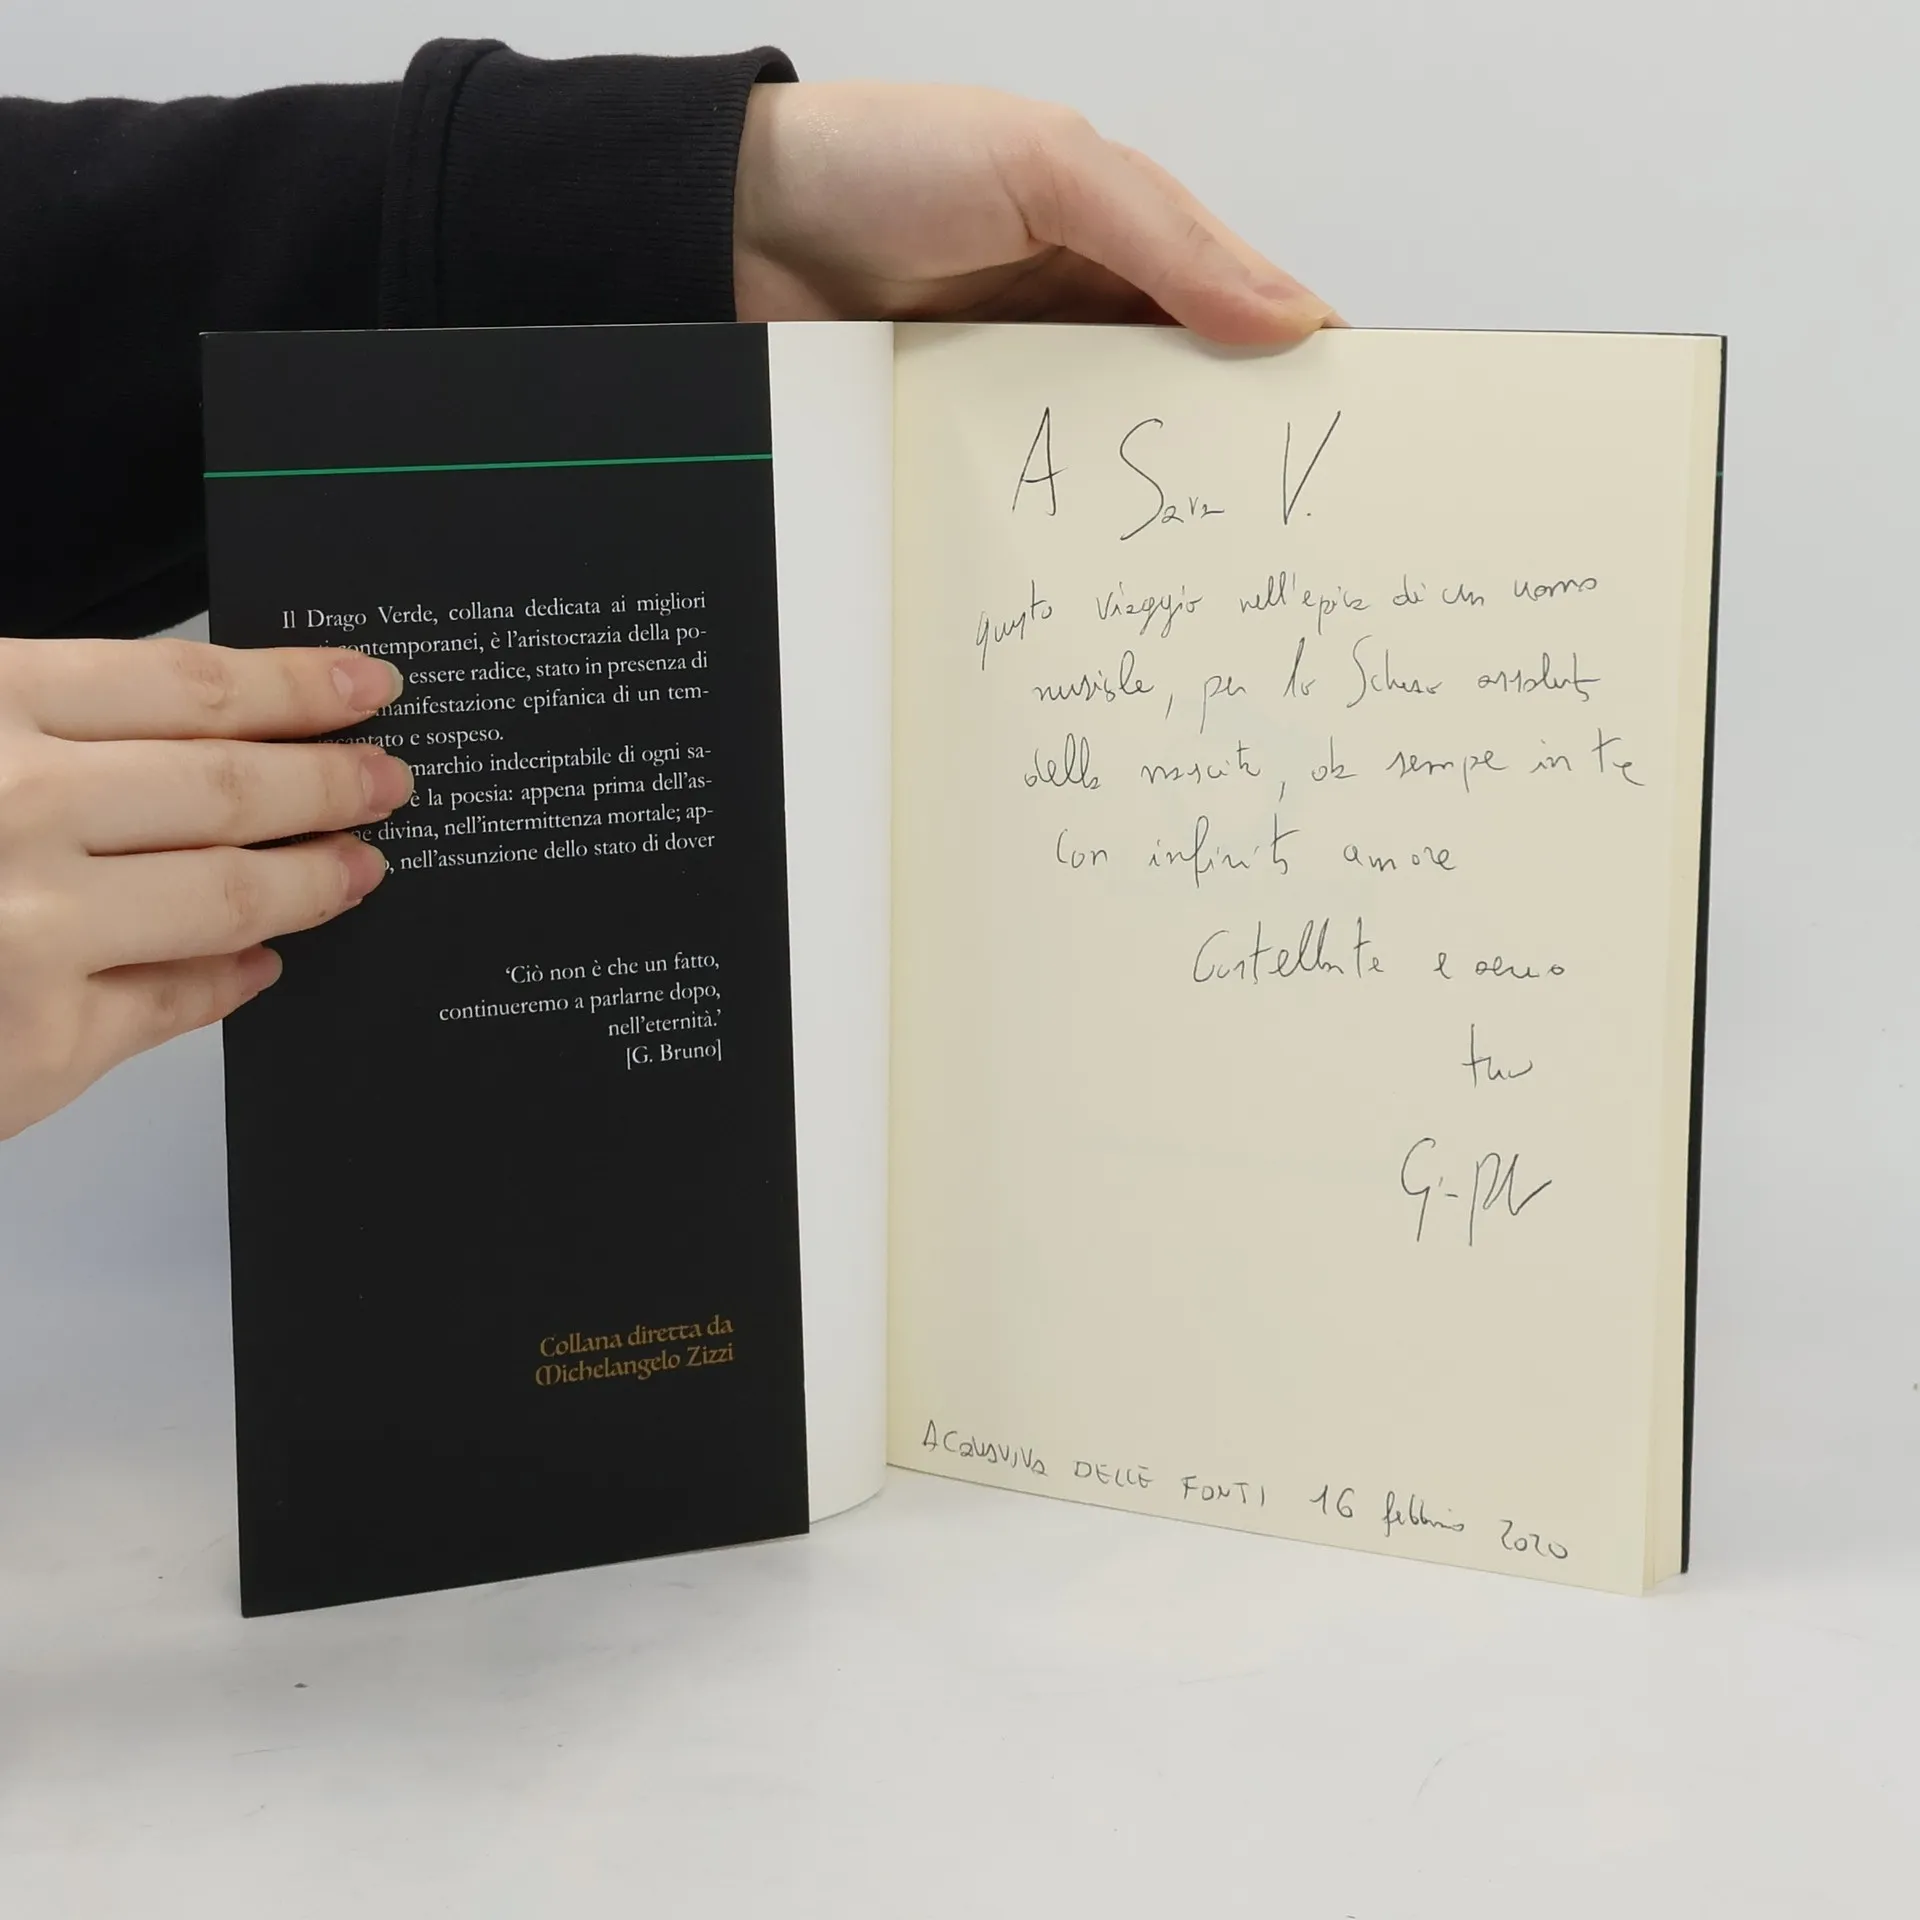 Il Drago Verde, collana dedicata ai migliori
contemporanei, è l'aristocrazia della po-
essere radice, stato in presenza di
manifestazione epifanica di un tem-
e sospeso.
marchio indecriptabile di ogni sa-
è la poesia: appena prima dell'as-
divina, nell'intermittenza mortale; ap-
nell'assunzione dello stato di dover
‘Ciò non è che un fatto,
continueremo a parlarne dopo,
nell'eternità.’
[G. Bruno]
Collana diretta da
Michelangelo Zizzi
A Sara V.
questo viaggio nell'epica di un uomo
per lo Scherzo assoluto
della nascita, sempre in te
Con infinito amore
e
tuo
ACQUAVIVA DELLE FONTI 16 febbraio 2020